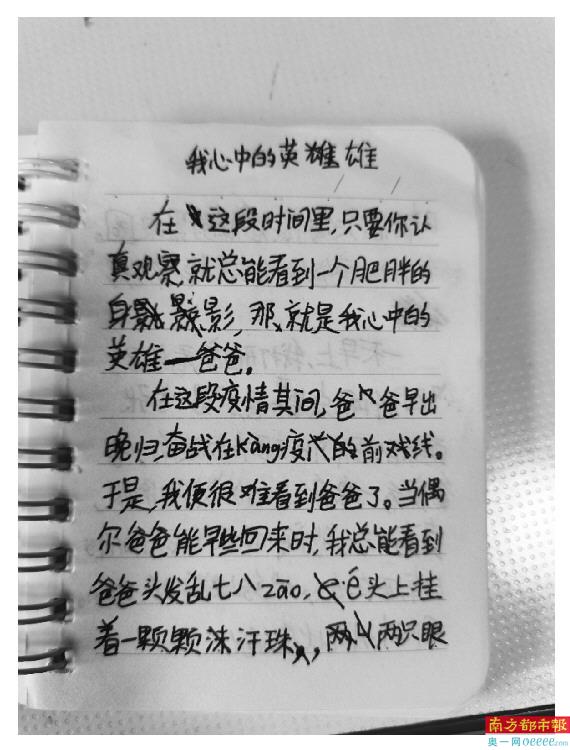 我心中的英雄
在这段时间里,只要你认
真观察,就总能看到一个肥胖的
身影,那就是我心中的
英雄—爸爸。
在这段疫情其间,爸爸早出
晚归,奋战在kàng疫的前线。
于是,我便很难看到爸爸了。当偶
尔爸爸能早些回来时,我总能看到
爸爸头发乱七八zāo,é头上挂
着一颗颗汗珠,两只眼
南方都市报
奥一网oeeee.com